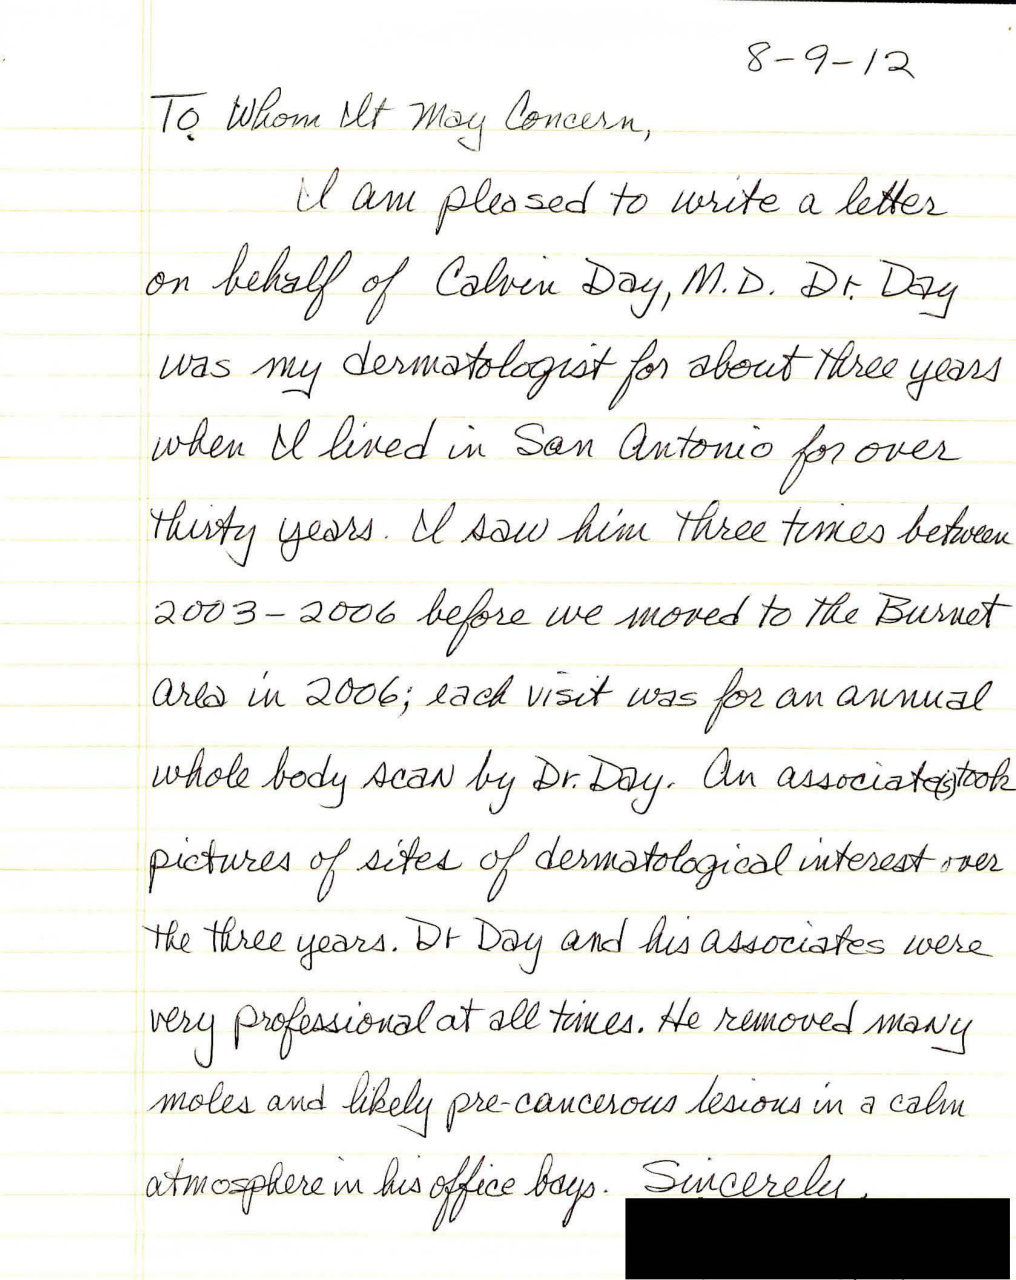 8-9-12
To Whom It May Concern,
I am pleased to write a letter
on behalf of Calvin Day, M.D. Dr. Day
was my dermatologist for about three years
when I lived in San Antonio for over
thirty years. I saw him three times between
2003-2006 before we moved to the Burnet
area in 2006; each visit was for an annual
whole body scan by Dr. Day. An associate(s) took
pictures of sites of dermatological interest over
the three years. Dr Day and his associates were
very professional at all times. He removed many
moles and likely pre-cancerous lesions in a calm
atmosphere in his office bays. Sincerely,